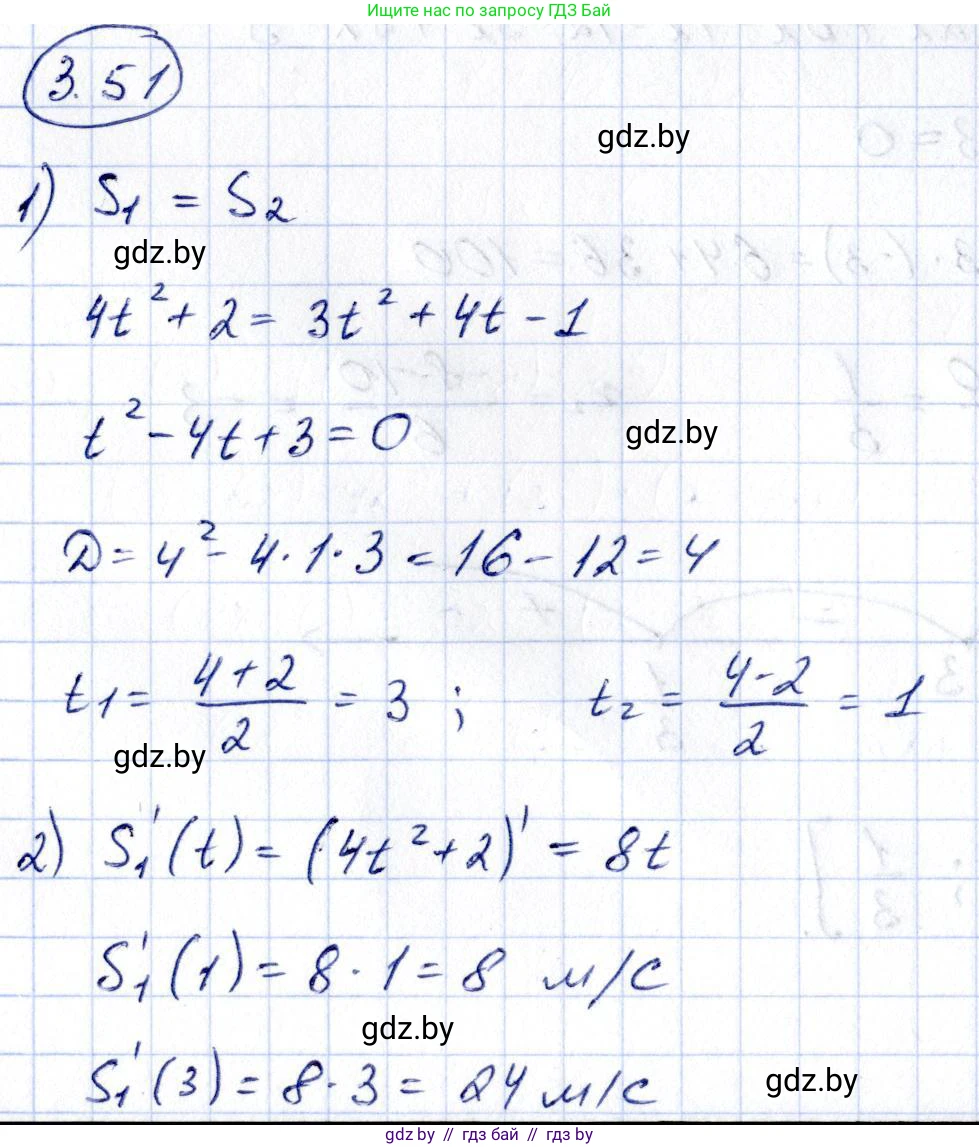 Ищите нас по запросу ГДЗ Бай
3.51
gdz.by
1) S₁ = S₂
gdz.by
4t² + 2 = 3t² + 4t - 1
t² - 4t + 3 = 0
gdz.by
D = 4² - 4·1·3 = 16 - 12 = 4
t₁ = (4+2)/2 = 3 ; t₂ = (4-2)/2 = 1
gdz.by
2) S₁'(t) = (4t² + 2)' = 8t
S₁'(1) = 8·1 = 8 м/с
gdz.by
S₁'(3) = 8·3 = 24 м/с
gdz.by
gdz.by // гдз бай // gdz.by